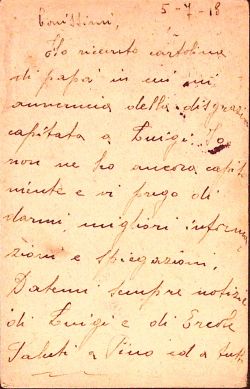 5-7-18
Carissimi,
Ho ricevuto cartolina
di papà in cui mi
annuncia della disgrazia
capitata a Luigi. Io
non ne ho ancora capito
niente e vi prego di
darmi migliori informa
zioni e spiegazioni.
Datemi sempre notizie
di Luigi e di Ercole
Saluti a Pino ed a tutti